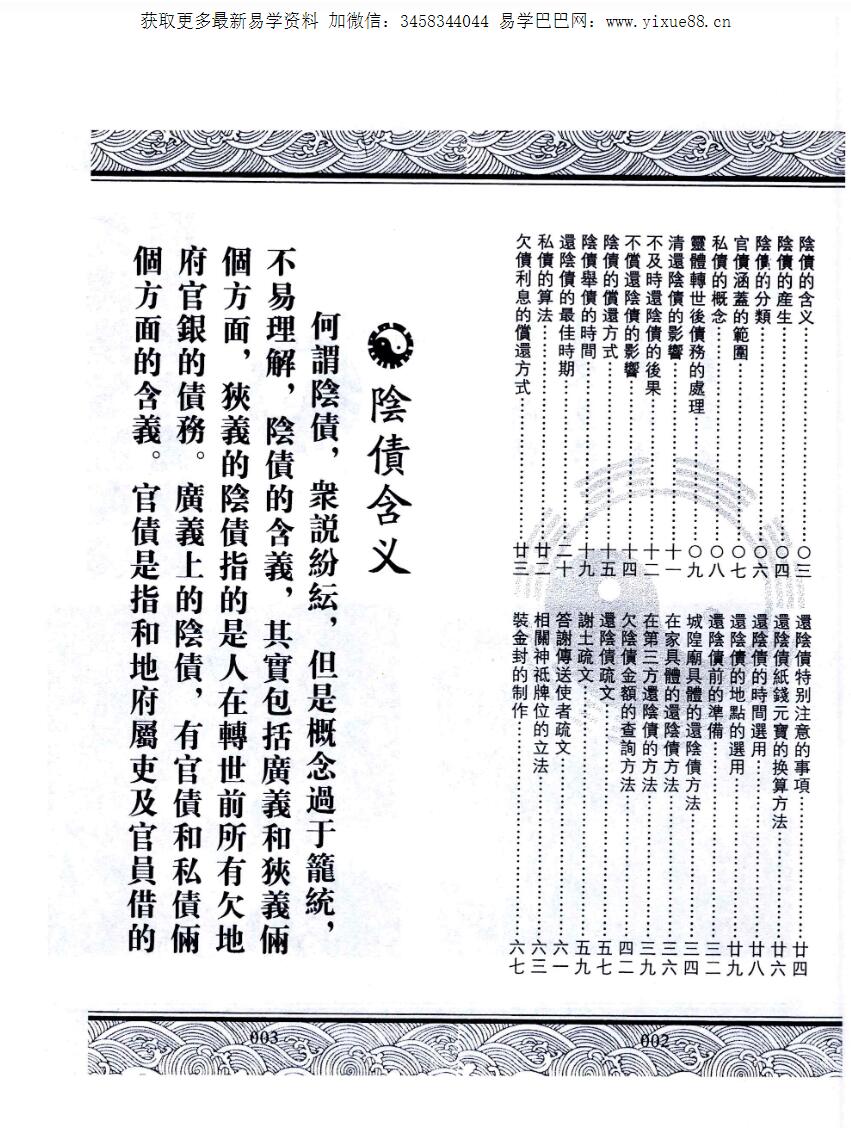 获取更多最新易学资料 加微信：3458344044 易学巴巴网：www.yixue88.cn
陰債的含义……〇三
陰債的産生……〇四
陰債的分類……〇六
官債涵蓋的範圍……〇七
私債的概念……〇八
靈體轉世後債務的處理……〇九
清還陰債的影響……十一
不及時還陰債的後果……十二
不償還陰債的影響……十四
陰債的償還方式……十五
陰債舉債的時間……十九
還陰債的最佳時期……二十
私債的算法……廿二
欠債利息的償還方式……廿三
還陰債特别注意的事項……廿四
還陰債紙錢元寶的换算方法……廿六
還陰債的時間選用……廿八
還陰債的地點的選用……廿九
還陰債前的準備……三二
城隍廟具體的還陰債方法……三四
在家具體的還陰債方法……三六
在第三方還陰債的方法……三九
欠陰債金額的查詢方法……四二
還陰債疏文……五七
謝土疏文……五九
答謝傳送使者疏文……六一
相關神祗牌位的立法……六三
裝金封的制作……六七
002
陰債含义
何謂陰債，衆説紛紜，但是概念過于籠統，
不易理解，陰債的含義，其實包括廣義和狹義倆
個方面，狹義的陰債指的是人在轉世前所有欠地
府官銀的債務。廣義上的陰債，有官債和私債倆
個方面的含義。官債是指和地府屬吏及官員借的
003